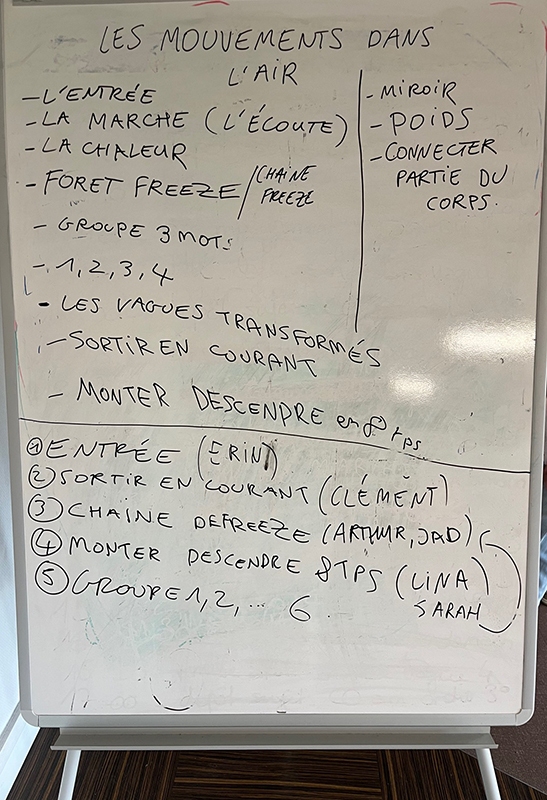 LES MOUVEMENTS DANS
L'AIR
- L'ENTRÉE
- LA MARCHE (L'ÉCOUTE)
- LA CHALEUR
- FORET FREEZE / CHAINE
FREEZE
- GROUPE 3 MOTS
- 1, 2, 3, 4
- LES VAGUES TRANSFORMÉS
- SORTIR EN COURANT
- MONTER DESCENDRE en 8 tps
- MIROIR
- POIDS
- CONNECTER
PARTIE DU
CORPS.
① ENTRÉE (ERIN)
② SORTIR EN COURANT (CLÉMENT)
③ CHAINE DEFREEZE (ARTHUR, JAD)
④ MONTER DESCENDRE 8TPS (LINA)
SARAH
⑤ GROUPE 1, 2, ... 6